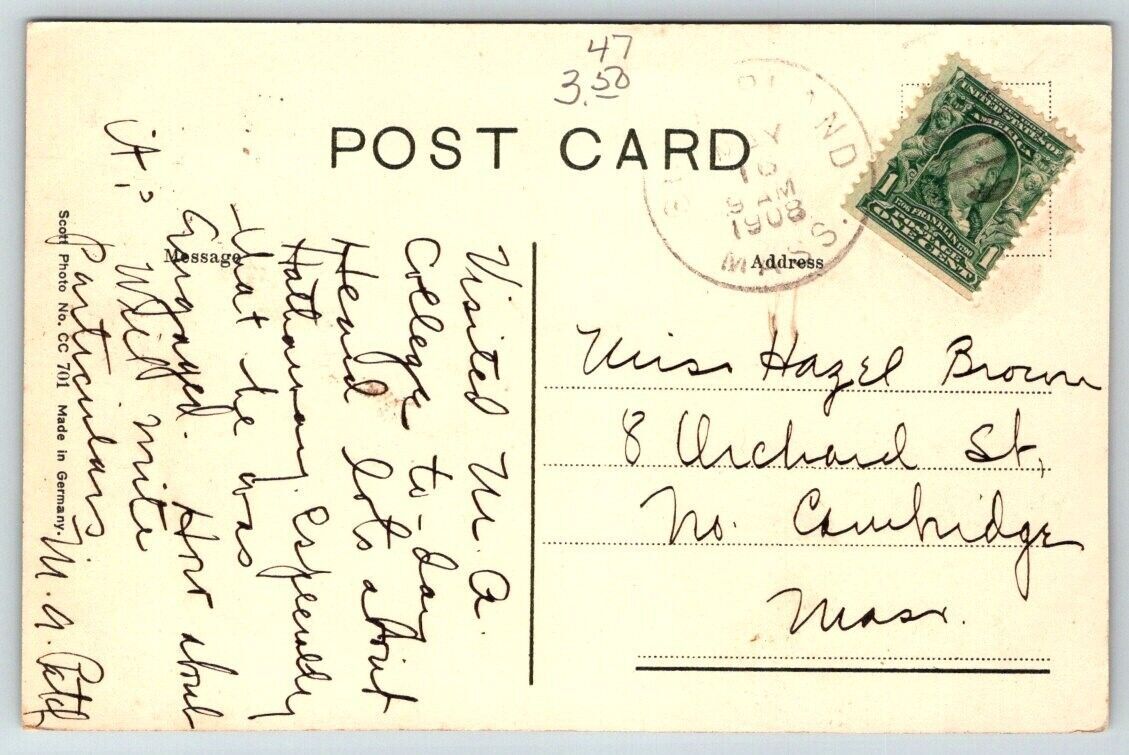 47
3.50
POST CARD
MAY
16
9 AM
1908
MASS.
UNITED STATES OF
AMERICA
1706 FRANKLIN 1790
POSTAGE
1 ONE CENT 1
Message
Address
Visited M. A.
College to-day
Heard lots about
Hathaway. Especially
that he was
Engaged. How about
it?
Will write
Particulars
M. A. Patch
Miss Hazel Brown
8 Orchard St,
No. Cambridge
Mass.
Scott Photo No. CC 701 Made in Germany.